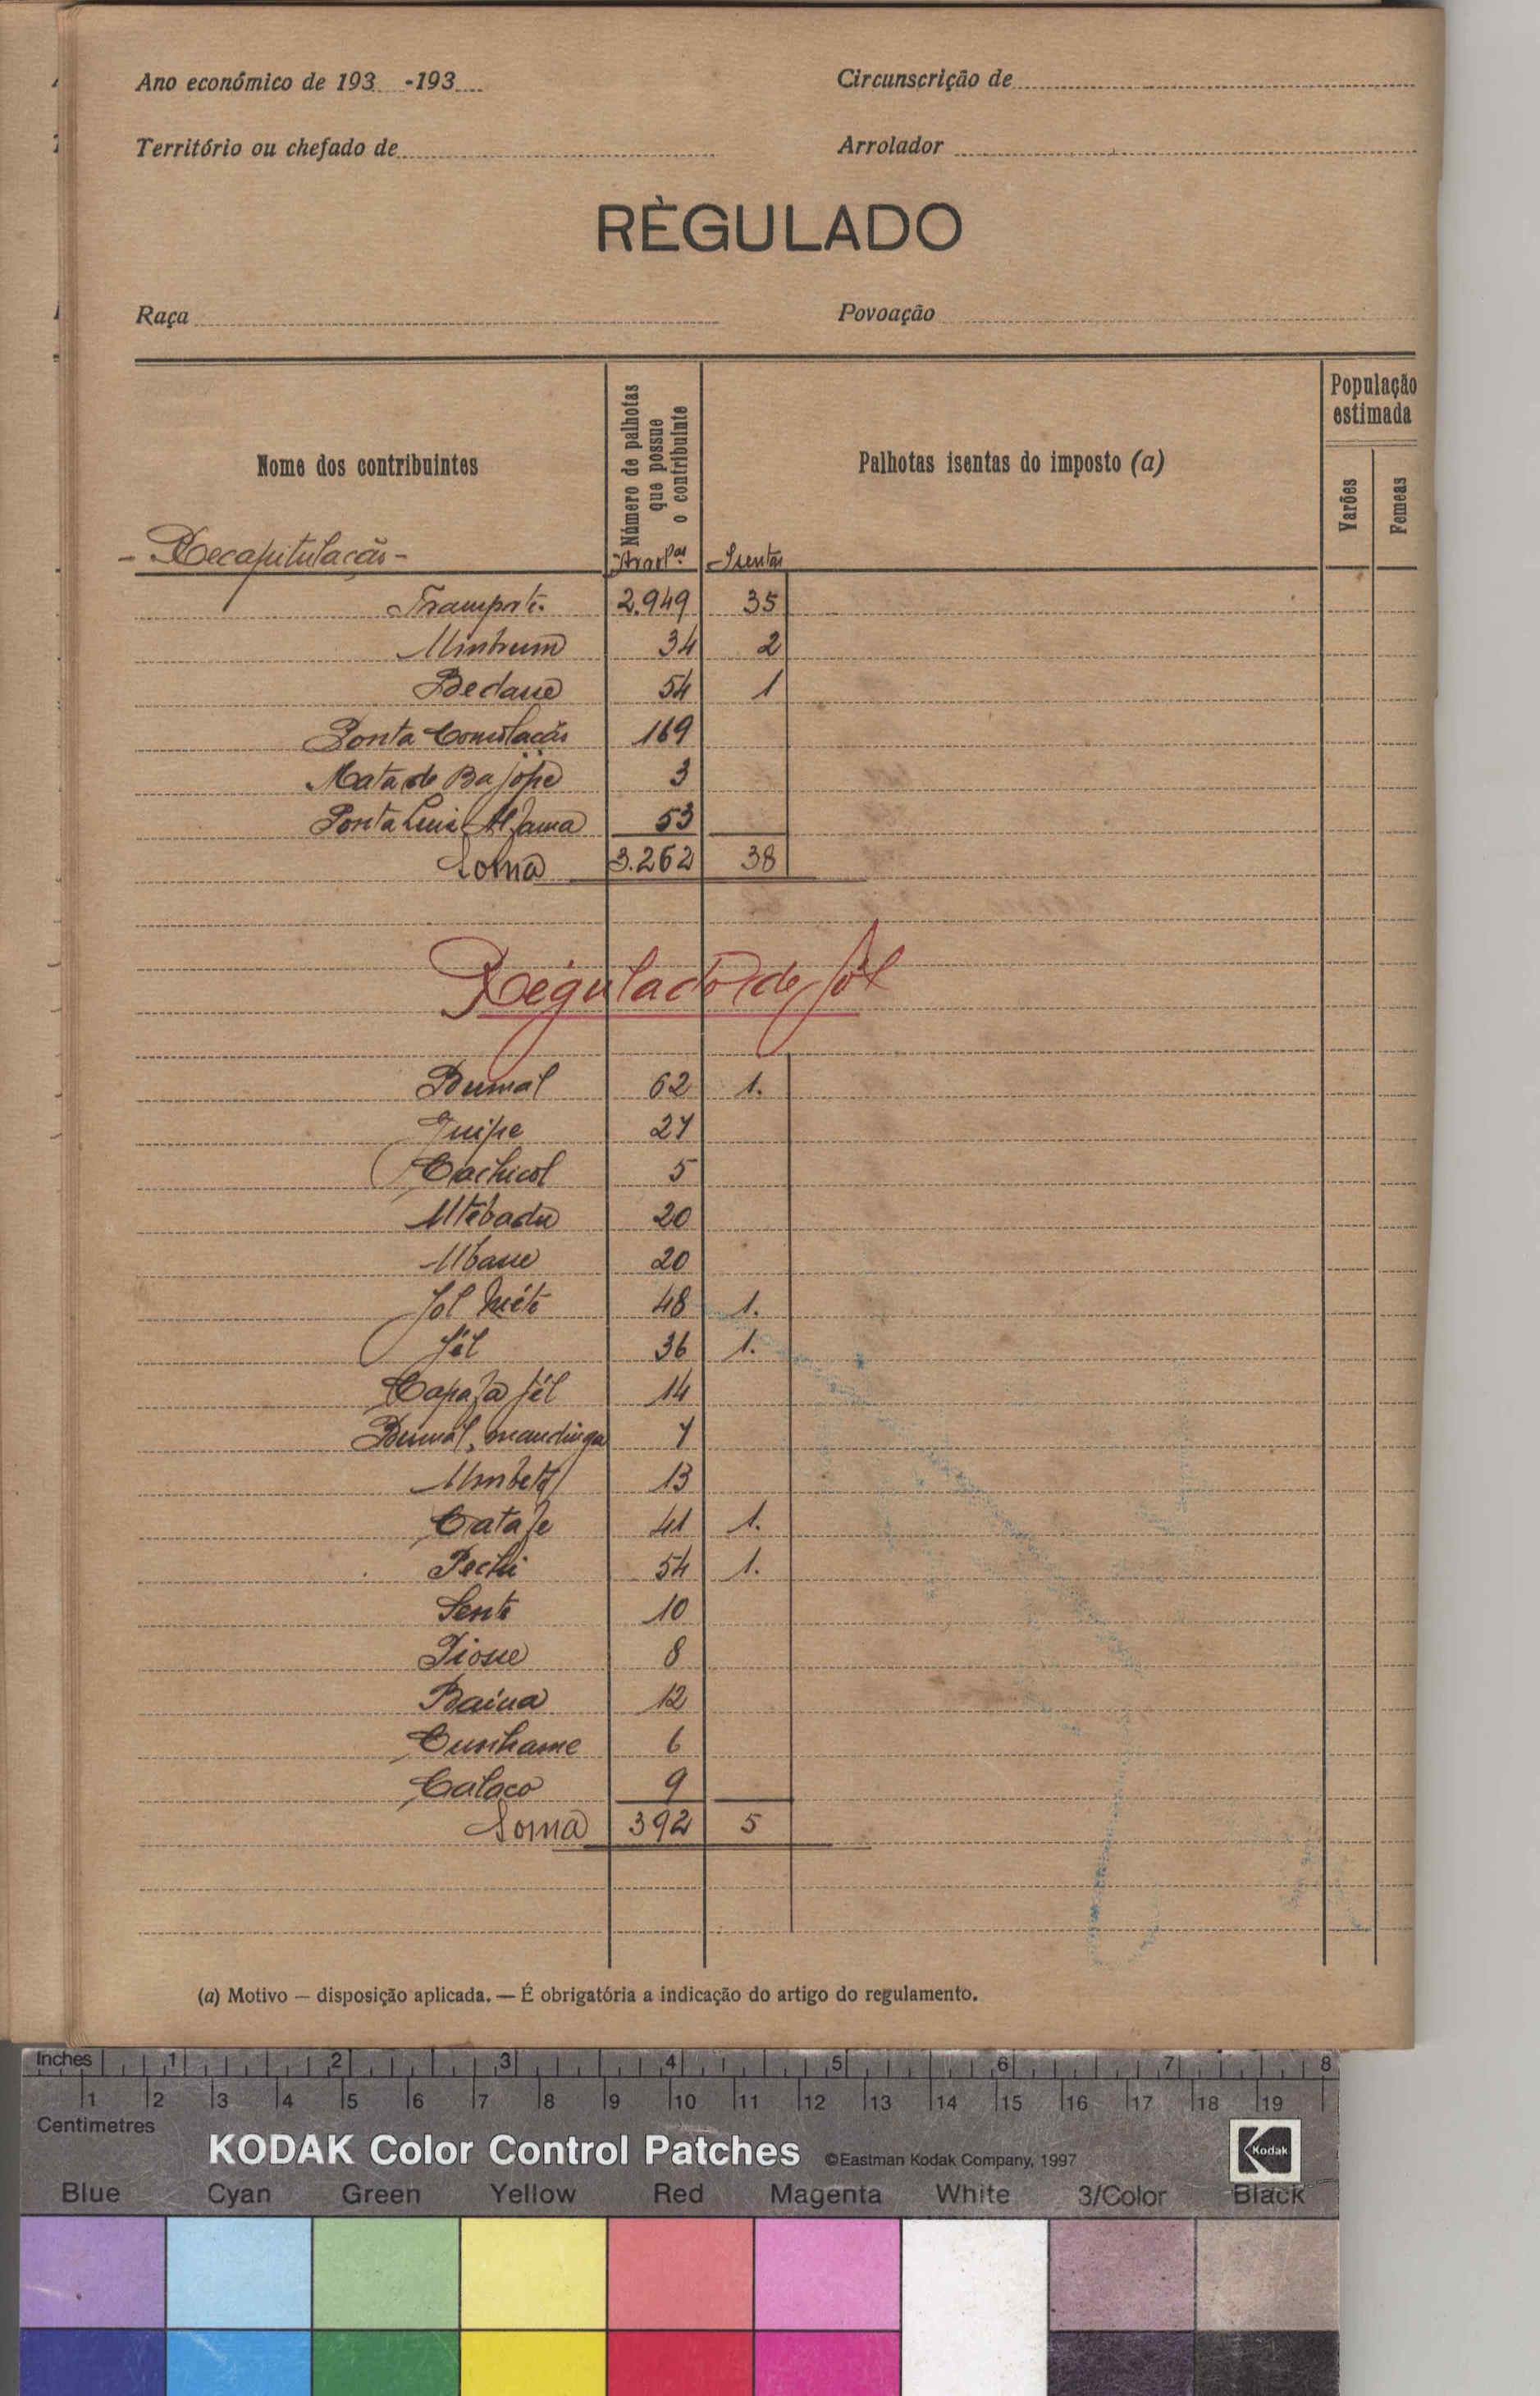 Ano económico de 193 -193
Circunscrição de
Território ou chefado de
Arrolador
RÈGULADO
Raça
Povoação
Nome dos contribuintes
Número de palhotas que possue o contribuinte
Palhotas isentas do imposto (a)
População estimada
Varões
Femeas
- Recapitulação - Arrol.as Isentas
Transporte 2.949 35
34 2
Bedane 54 1
Ponta Consolação 169
Mata de Bajópe 3
Ponta Luis 53
Soma 3.262 38
Régulado de Jól
Bumal 62 1.
27
Cachicol 5
20
20
Jol 48 1.
Jól 36 1.
Jól 14
Bumal, mandinga 7
13
41 1.
Pechi 54 1.
10
8
Baina 12
Cunhame 6
Calaco 9
Soma 392 5
(a) Motivo — disposição aplicada. — É obrigatória a indicação do artigo do regulamento.
Inches 1 2 3 4 5 6 7 8
1 2 3 4 5 6 7 8 9 10 11 12 13 14 15 16 17 18 19
Centimetres
KODAK Color Control Patches ©Eastman Kodak Company, 1997 Kodak
Blue Cyan Green Yellow Red Magenta White 3/Color Black